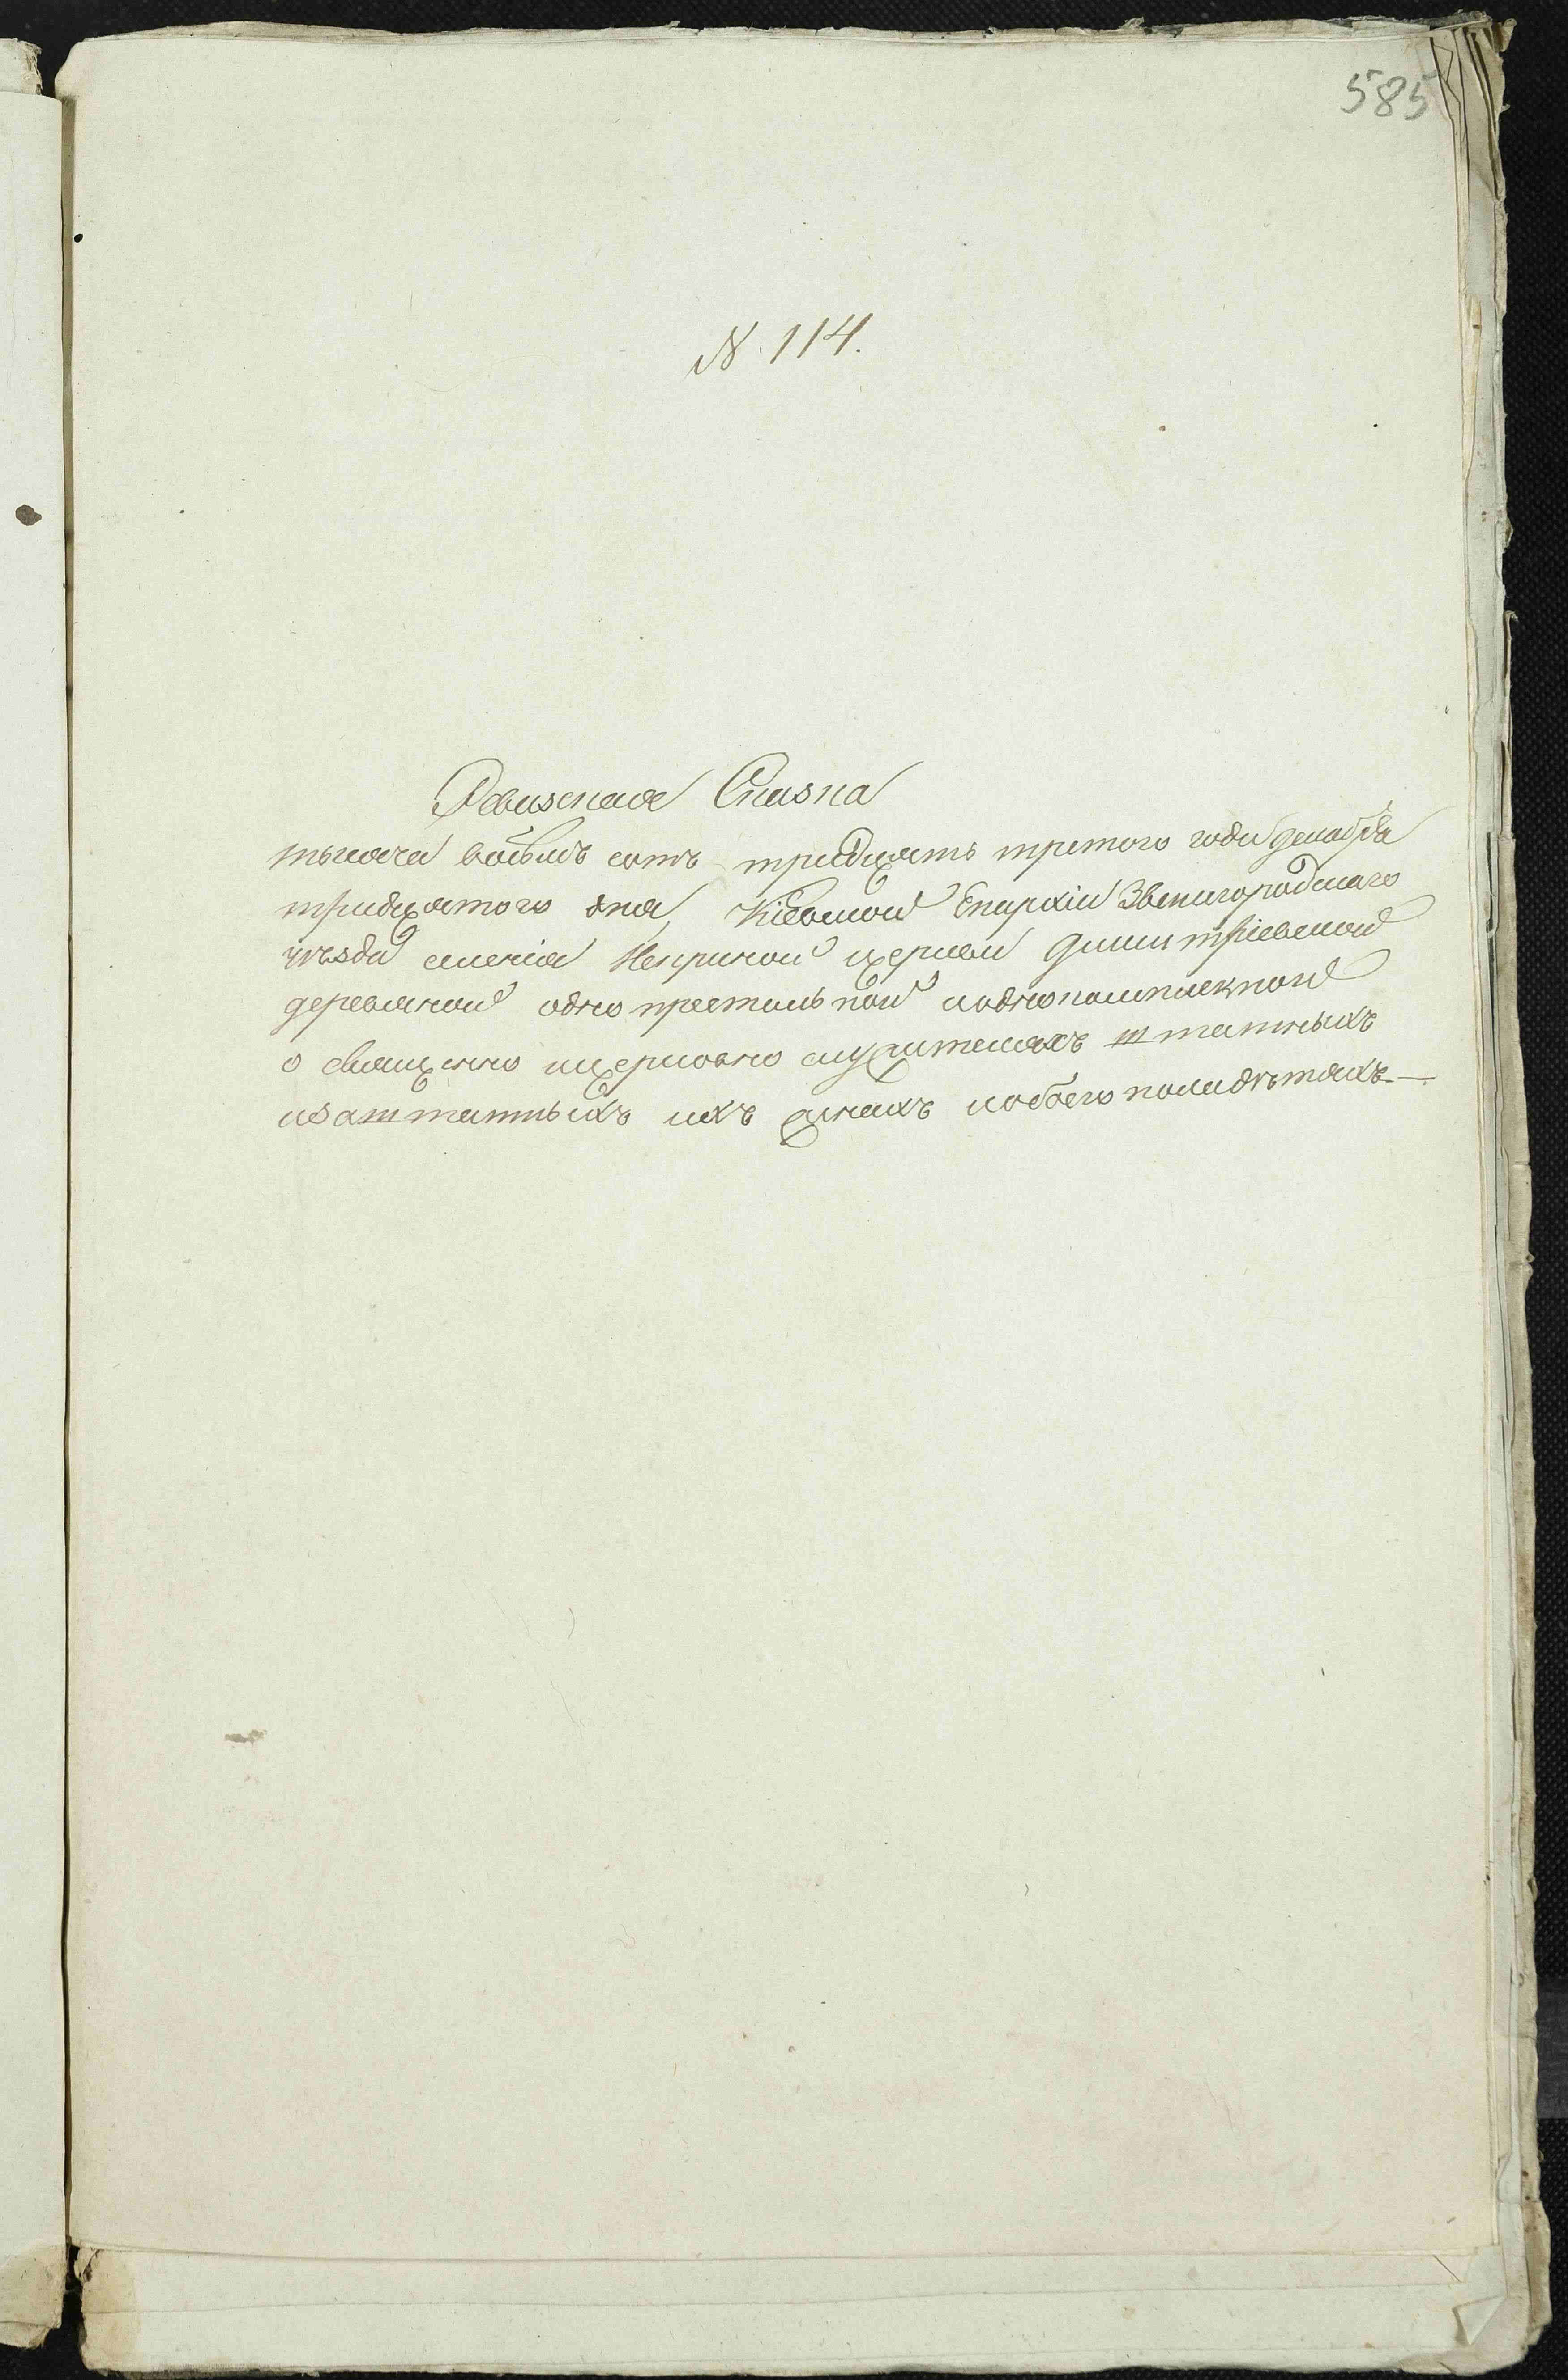 585
N. 114.
Ревизская Сказка
тысяча восѣмъ сотъ тридцять третого года декабря
тридцятого дня, Кіевской Епархіи Звенигородскаго
уѣзда имѣнія церкви Димитріевской
деревяной одно престольной иоднокомплектной
о священно ицерковно служителяхъ штатныхъ
изаштатныхъ ихъ женахъ иобоего поладѣтяхъ. —